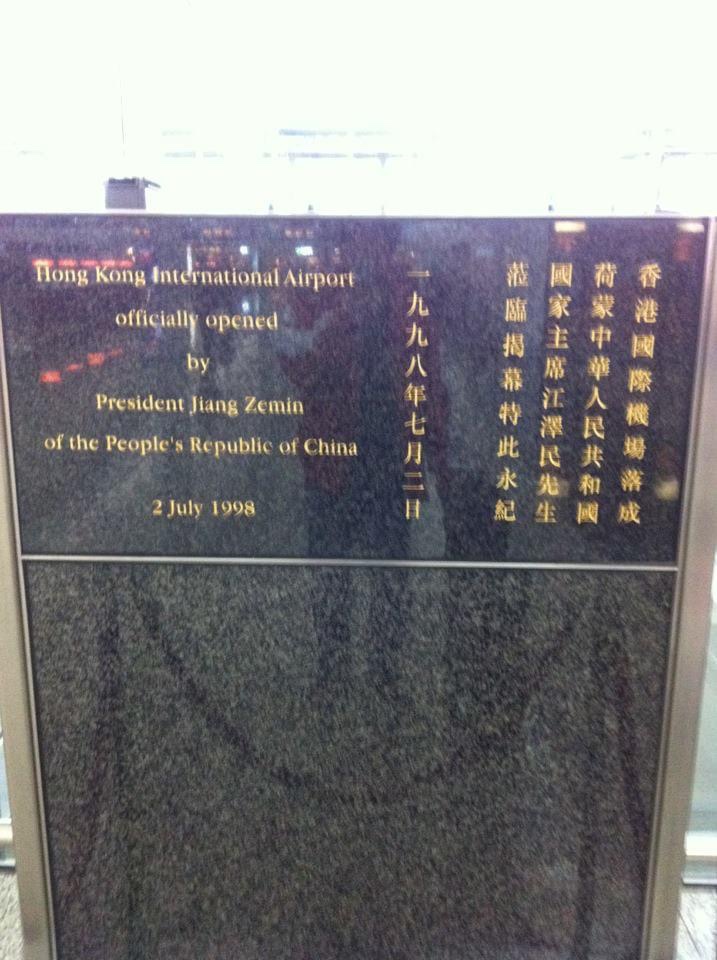 Hong Kong International Airport
officially opened
by
President Jiang Zemin
of the People's Republic of China
2 July 1998
香港國際機場落成
荷蒙中華人民共和國
國家主席江澤民先生
蒞臨揭幕特此永紀
一九九八年七月二日